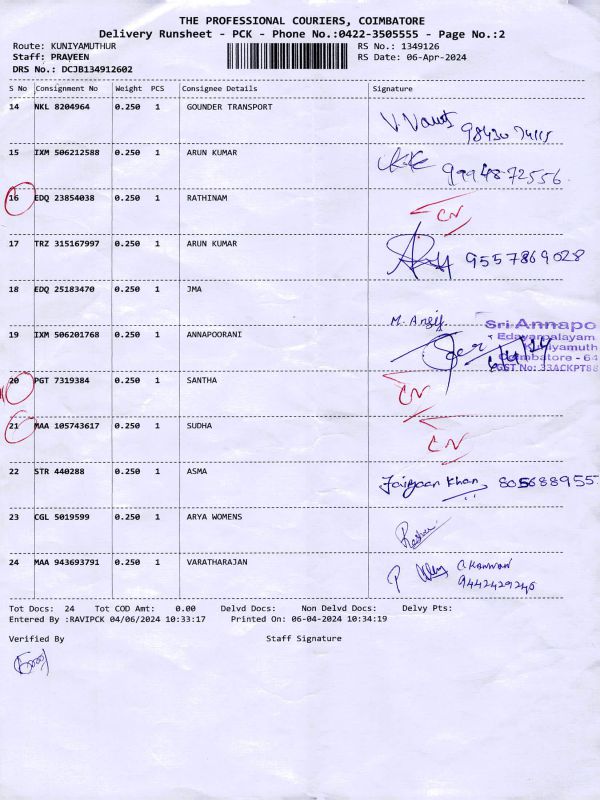 THE PROFESSIONAL COURIERS, COIMBATORE
Delivery Runsheet - PCK - Phone No.:0422-3505555 - Page No.:2
Route: KUNIYAMUTHUR RS No.: 1349126
Staff: PRAVEEN RS Date: 06-Apr-2024
DRS No.: DCJB134912602
S No Consignment No Weight PCS Consignee Details Signature
14 NKL 8204964 0.250 1 GOUNDER TRANSPORT
15 IXM 506212588 0.250 1 ARUN KUMAR
9994872556
16 EDQ 23854038 0.250 1 RATHINAM CN
17 TRZ 315167997 0.250 1 ARUN KUMAR 9557869028
18 EDQ 25183470 0.250 1 JMA
Sri Annapo
Edayarpalayam
19 IXM 506201768 0.250 1 ANNAPOORANI
GST.No: 33ACKPT88
20 PGT 7319384 0.250 1 SANTHA CN
21 MAA 105743617 0.250 1 SUDHA CN
22 STR 440288 0.250 1 ASMA Khan 805688955
23 CGL 5019599 0.250 1 ARYA WOMENS
24 MAA 943693791 0.250 1 VARATHARAJAN
9442429246
Tot Docs: 24 Tot COD Amt: 0.00 Delvd Docs: Non Delvd Docs: Delvy Pts:
Entered By :RAVIPCK 04/06/2024 10:33:17 Printed On: 06-04-2024 10:34:19
Verified By Staff Signature